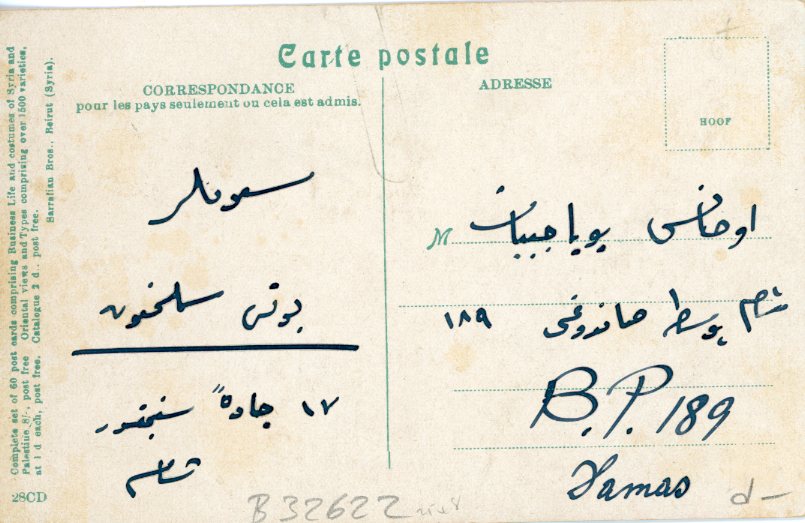 Carte postale
CORRESPONDANCE
pour les pays seulement ou cela est admis.
ADRESSE
HOOF
Complete set of 60 post cards comprising Business Life and costumes of Syria and
Palestine 8/-. post free Oriental views and Types comprising over 1500 varieties,
at 1 d each, post free. Catalogue 2 d., post free.
Sarrafian Bros., Beirut (Syria).
28CD
١٧ جادة
شام
M اوحانس بوياجيان
شام بوسطه صاندوغى ١٨٩
B.P. 189
Damas
B 32622
d-